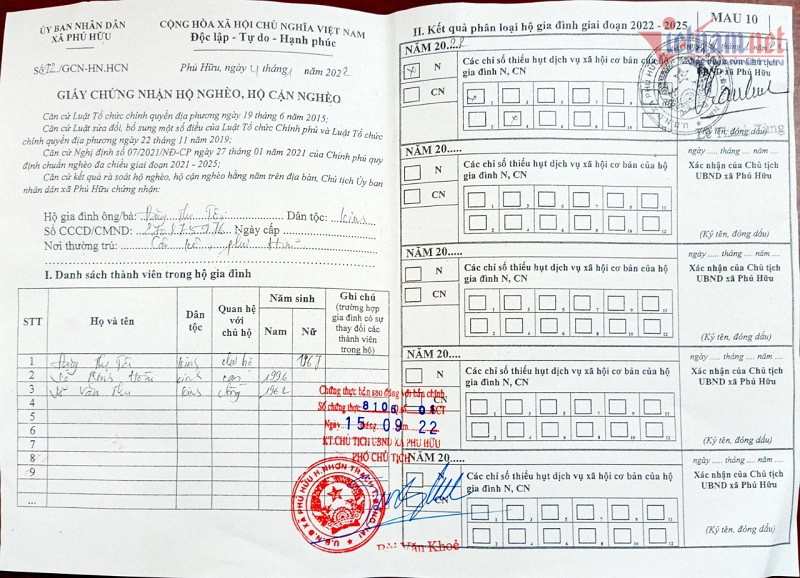 ỦY BAN NHÂN DÂN
XÃ PHÚ HỮU
CỘNG HÒA XÃ HỘI CHỦ NGHĨA VIỆT NAM
Độc lập - Tự do - Hạnh phúc
/GCN-HN.HCN
Phú Hữu, ngày 4 tháng 1 năm 2022
GIẤY CHỨNG NHẬN HỘ NGHÈO, HỘ CẬN NGHÈO
Căn cứ Luật Tổ chức chính quyền địa phương ngày 19 tháng 6 năm 2015;
Căn cứ Luật sửa đổi, bổ sung một số điều của Luật Tổ chức Chính phủ và Luật Tổ chức
chính quyền địa phương ngày 22 tháng 11 năm 2019;
Căn cứ Nghị định số 07/2021/NĐ-CP ngày 27 tháng 01 năm 2021 của Chính phủ quy
định chuẩn nghèo đa chiều giai đoạn 2021 - 2025;
Căn cứ kết quả rà soát hộ nghèo, hộ cận nghèo hằng năm trên địa bàn, Chủ tịch Ủy ban
nhân dân xã Phú Hữu chứng nhận:
Hộ gia đình ông/bà: Dân tộc: kinh
Số CCCD/CMND: Ngày cấp
Nơi thường trú: phú Hữu
I. Danh sách thành viên trong hộ gia đình
STT Họ và tên Dân tộc Quan hệ với chủ hộ Năm sinh Nam Nữ Ghi chú (trường hợp gia đình có sự thay đổi các thành viên trong hộ)
1 kinh chủ hộ 1967
2 kinh con 1996
3 Văn kinh chồng 1962
4
5
6
7
8
9
...
Chứng thực bản sao đúng với bản chính
Số chứng thực 8106 SCT
Ngày 15 tháng 09 năm 22
KT.CHỦ TỊCH UBND XÃ PHÚ HỮU
PHÓ CHỦ TỊCH
U.B.N.D XÃ PHÚ HỮU H.NHƠN TRẠCH T.ĐỒNG NAI
Bùi Văn Khoẻ
II. Kết quả phân loại hộ gia đình giai đoạn 2022 - 2025
MẪU 10
Vietnamnet
NĂM 2022
N
CN
Các chỉ số thiếu hụt dịch vụ xã hội cơ bản của hộ
gia đình N, CN
UBND xã Phú Hữu
(Ký tên, đóng dấu)
NĂM 20.....
N
CN
Các chỉ số thiếu hụt dịch vụ xã hội cơ bản của hộ
gia đình N, CN
ngày ..... tháng ..... năm .....
Xác nhận của Chủ tịch
UBND xã Phú Hữu
(Ký tên, đóng dấu)
NĂM 20.....
N
CN
Các chỉ số thiếu hụt dịch vụ xã hội cơ bản của hộ
gia đình N, CN
ngày ..... tháng ..... năm .....
Xác nhận của Chủ tịch
UBND xã Phú Hữu
(Ký tên, đóng dấu)
NĂM 20.....
N
CN
Các chỉ số thiếu hụt dịch vụ xã hội cơ bản của hộ
gia đình N, CN
ngày ..... tháng ..... năm .....
Xác nhận của Chủ tịch
UBND xã Phú Hữu
(Ký tên, đóng dấu)
NĂM 20.....
N
CN
Các chỉ số thiếu hụt dịch vụ xã hội cơ bản của hộ
gia đình N, CN
ngày ..... tháng ..... năm .....
Xác nhận của Chủ tịch
UBND xã Phú Hữu
(Ký tên, đóng dấu)